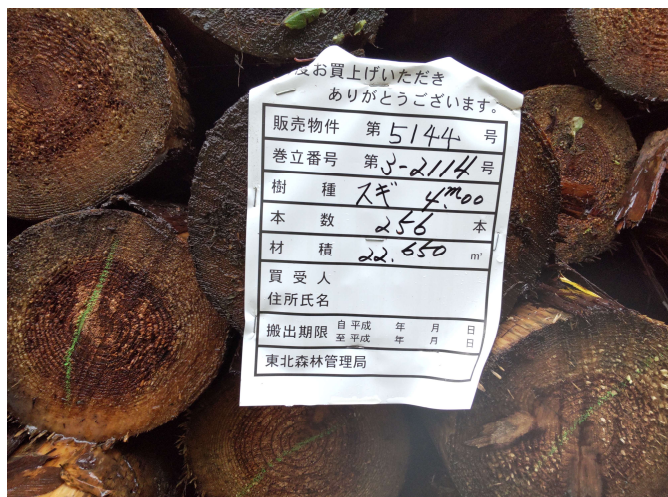 度お買上げいただき
ありがとうございます。
販売物件 第 5144 号
巻立番号 第 3-2114 号
樹種 スギ 4.m00
本数 256 本
材積 22.650 m³
買受人
住所氏名
搬出期限 自 平成 年 月 日
至 平成 年 月 日
東北森林管理局